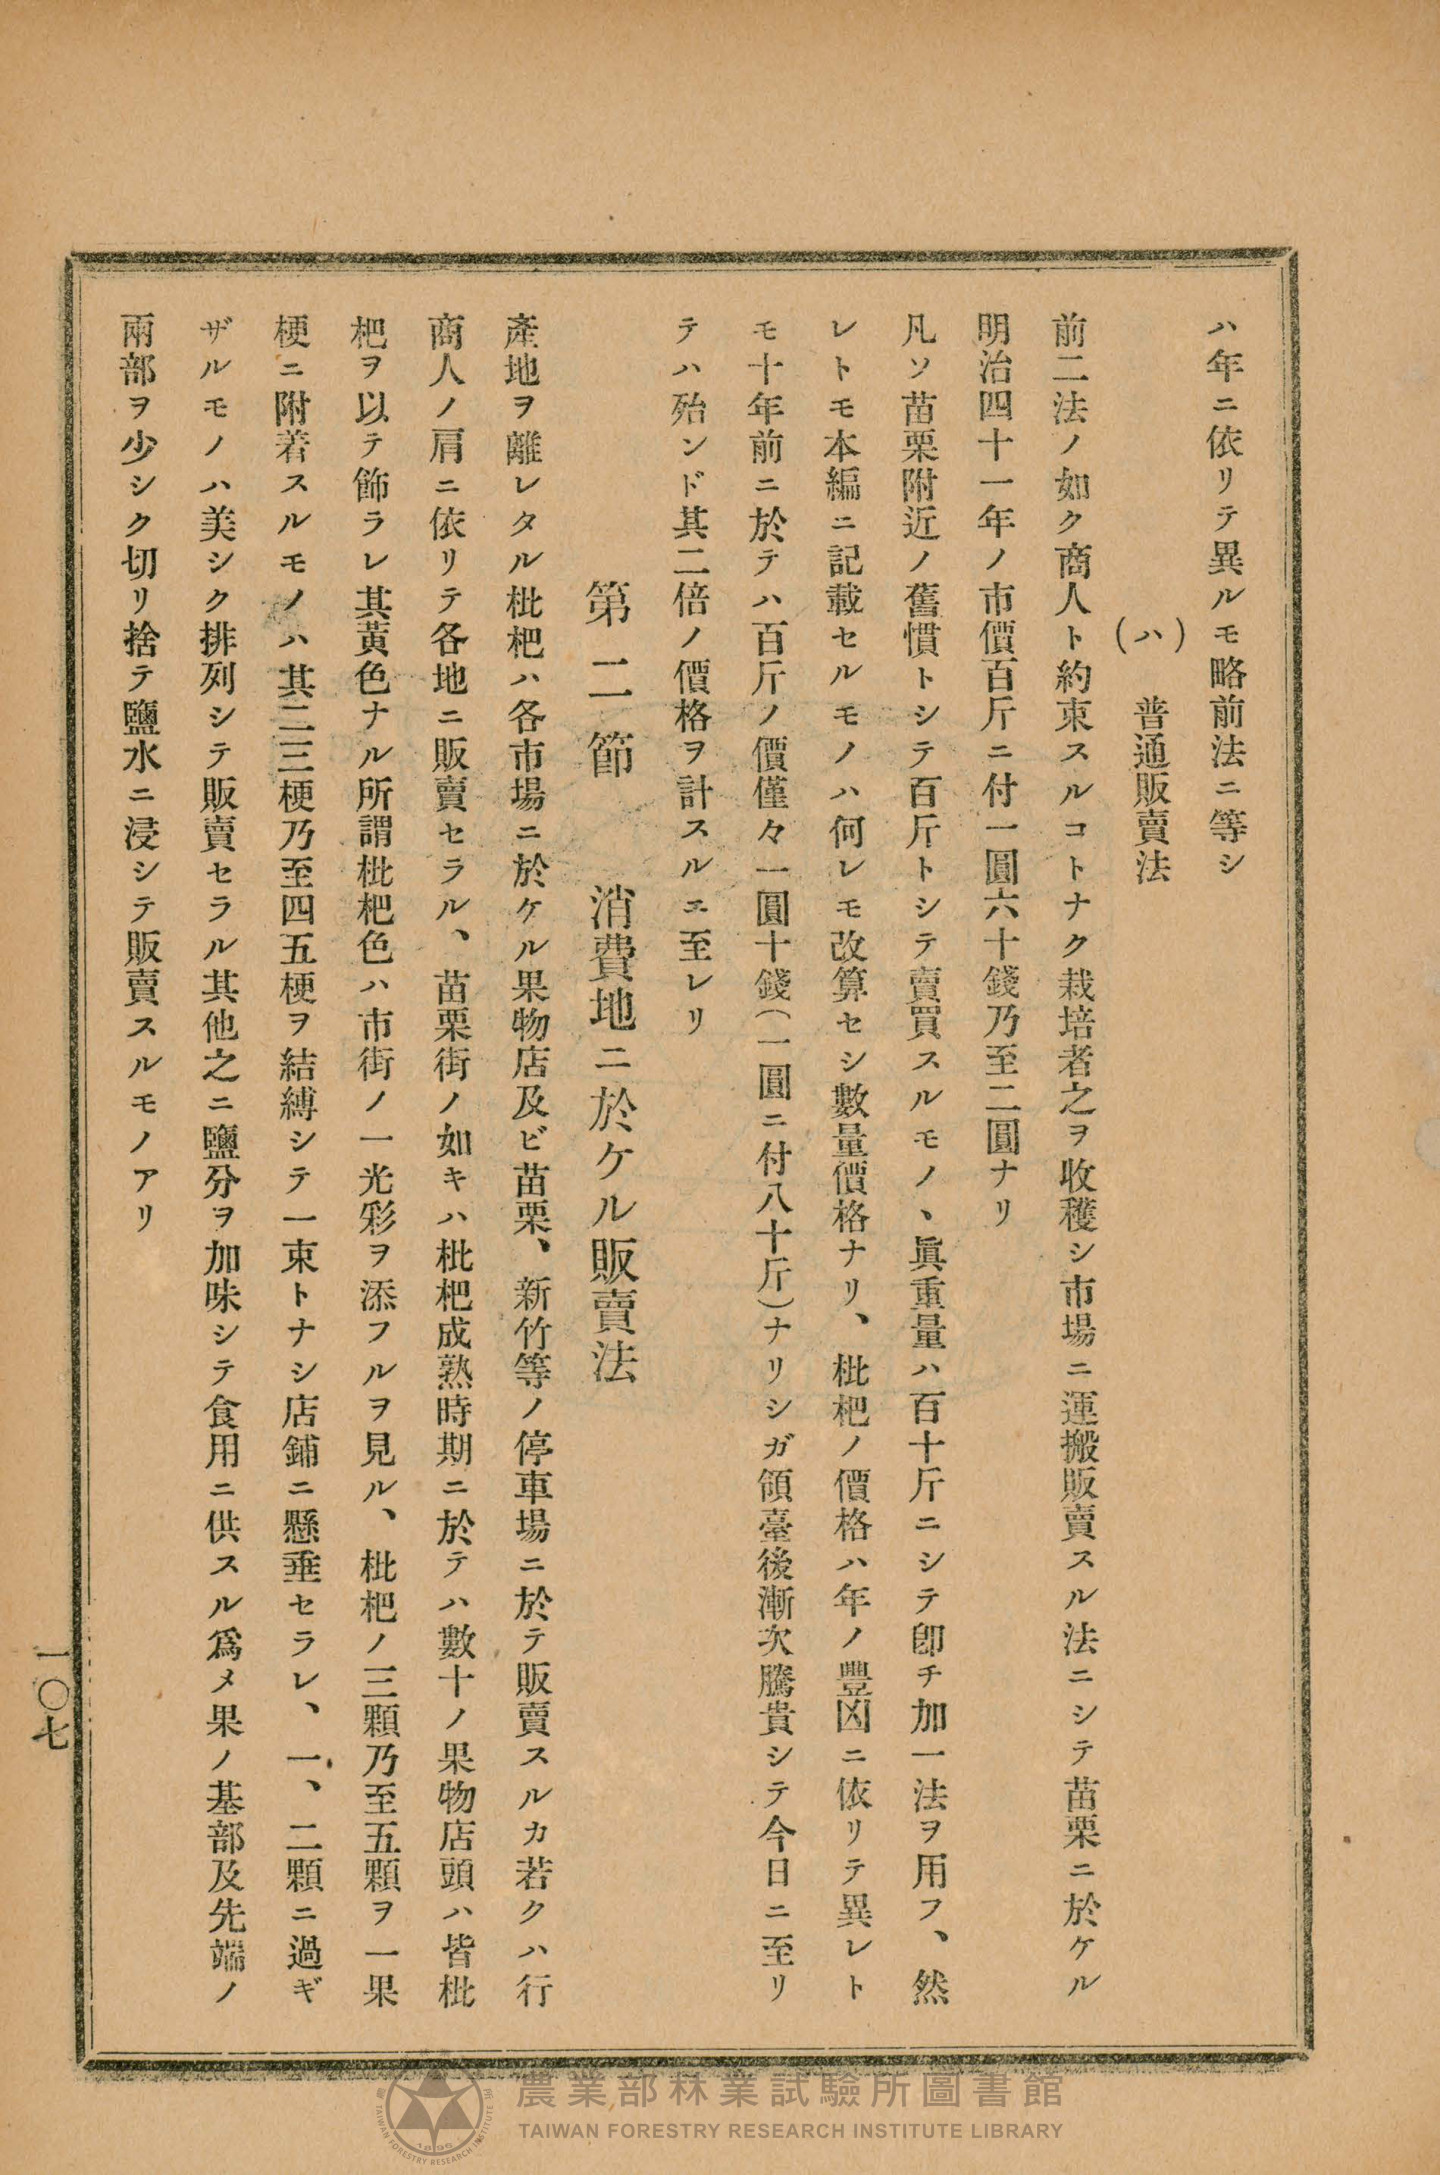 ハ年ニ依リテ異ルモ略前法ニ等シ
（ハ）　普通販賣法
前二法ノ如ク商人ト約束スルコトナク栽培者之ヲ收穫シ市場ニ運搬販賣スル法ニシテ苗栗ニ於ケル
明治四十一年ノ市價百斤ニ付一圓六十錢乃至二圓ナリ
凡ソ苗栗附近ノ舊慣トシテ百斤トシテ賣買スルモノヽ眞重量ハ百十斤ニシテ卽チ加一法ヲ用フ、然
レトモ本編ニ記載セルモノハ何レモ改算セシ數量價格ナリ、枇杷ノ價格ハ年ノ豐凶ニ依リテ異レト
モ十年前ニ於テハ百斤ノ價僅々一圓十錢（一圓ニ付八十斤）ナリシガ領臺後漸次騰貴シテ今日ニ至リ
テハ殆ンド其二倍ノ價格ヲ計スルニ至レリ
第二節　消費地ニ於ケル販賣法
產地ヲ離レタル枇杷ハ各市場ニ於ケル果物店及ビ苗栗、新竹等ノ停車場ニ於テ販賣スルカ若クハ行
商人ノ肩ニ依リテ各地ニ販賣セラル、苗栗街ノ如キハ枇杷成熟時期ニ於テハ數十ノ果物店頭ハ皆枇
杷ヲ以テ飾ラレ其黃色ナル所謂枇杷色ハ市街ノ一光彩ヲ添フルヲ見ル、枇杷ノ三顆乃至五顆ヲ一果
梗ニ附着スルモノハ其二三梗乃至四五梗ヲ結縛シテ一束トナシ店鋪ニ懸垂セラレ、一、二顆ニ過ギ
ザルモノハ美シク排列シテ販賣セラル其他之ニ鹽分ヲ加味シテ食用ニ供スル爲メ果ノ基部及先端ノ
兩部ヲ少シク切リ捨テ鹽水ニ浸シテ販賣スルモノアリ
一〇七
農業部林業試驗所圖書館
TAIWAN FORESTRY RESEARCH INSTITUTE LIBRARY
TAIWAN FORESTRY RESEARCH INSTITUTE
1896